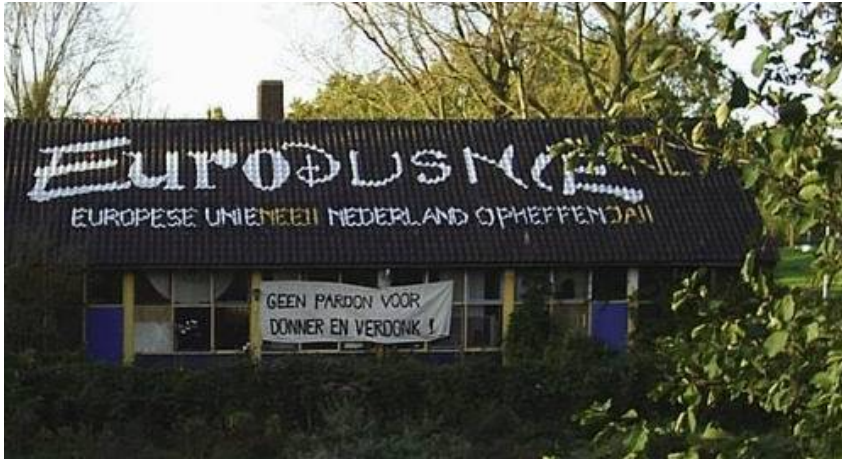 EuroDUSNIE.NL
EUROPESE UNIENEE!! NEDERLAND OPHEFFENJA!!
GEEN PARDON VOOR
DONNER EN VERDONK !